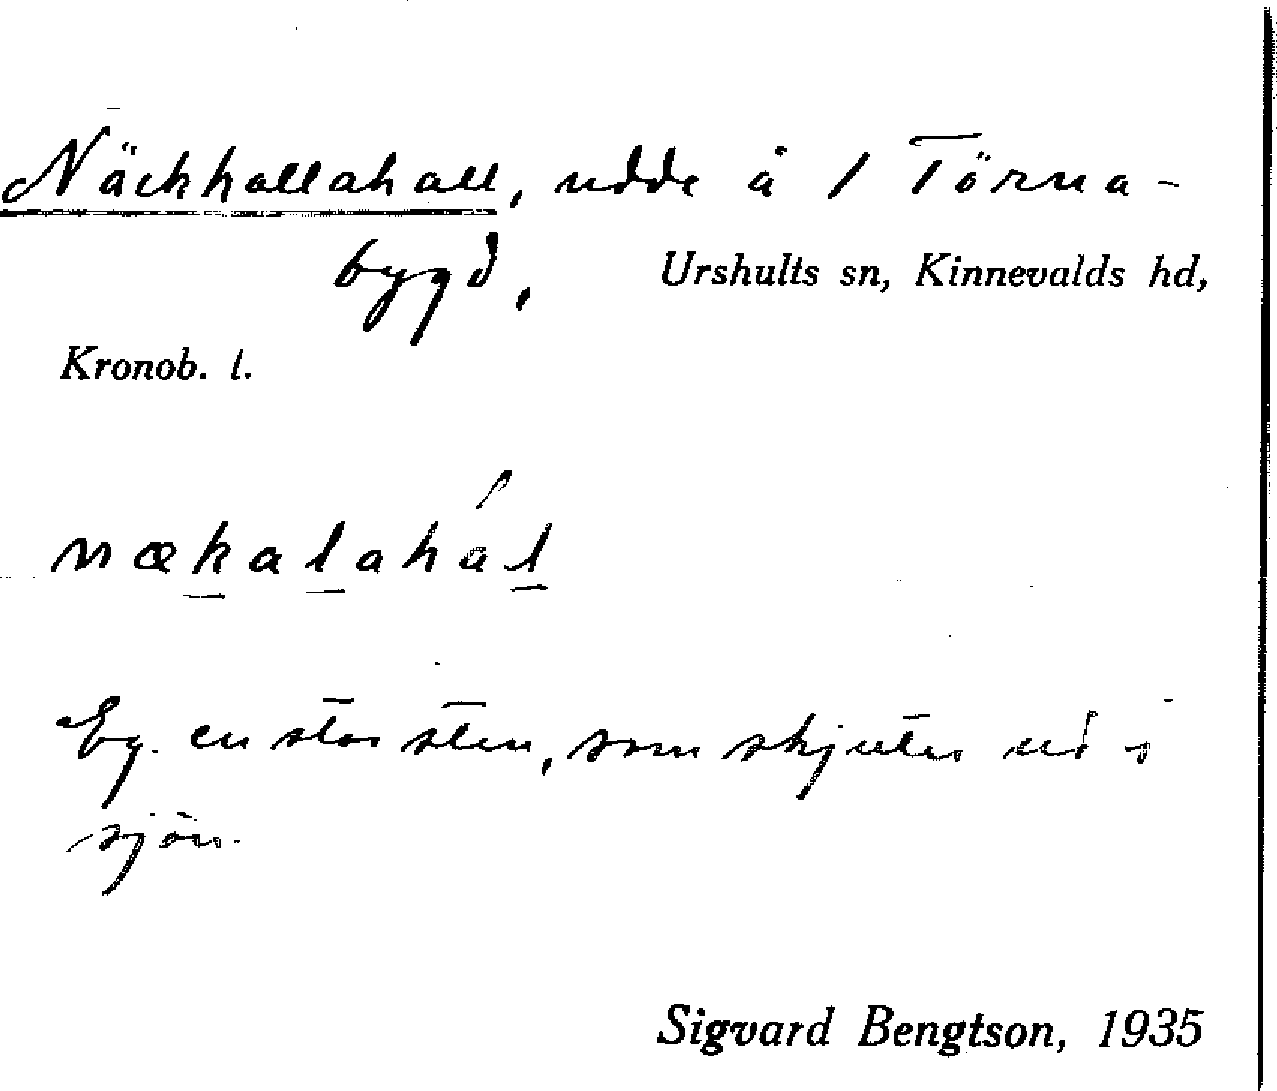 Näckhallahall, udde å 1 Törna-
bygd, Urshults sn, Kinnevalds hd,
Kronob. l.
nækalahál
Eg. en stor sten, som skjuter ut i
sjön.
Sigvard Bengtson, 1935